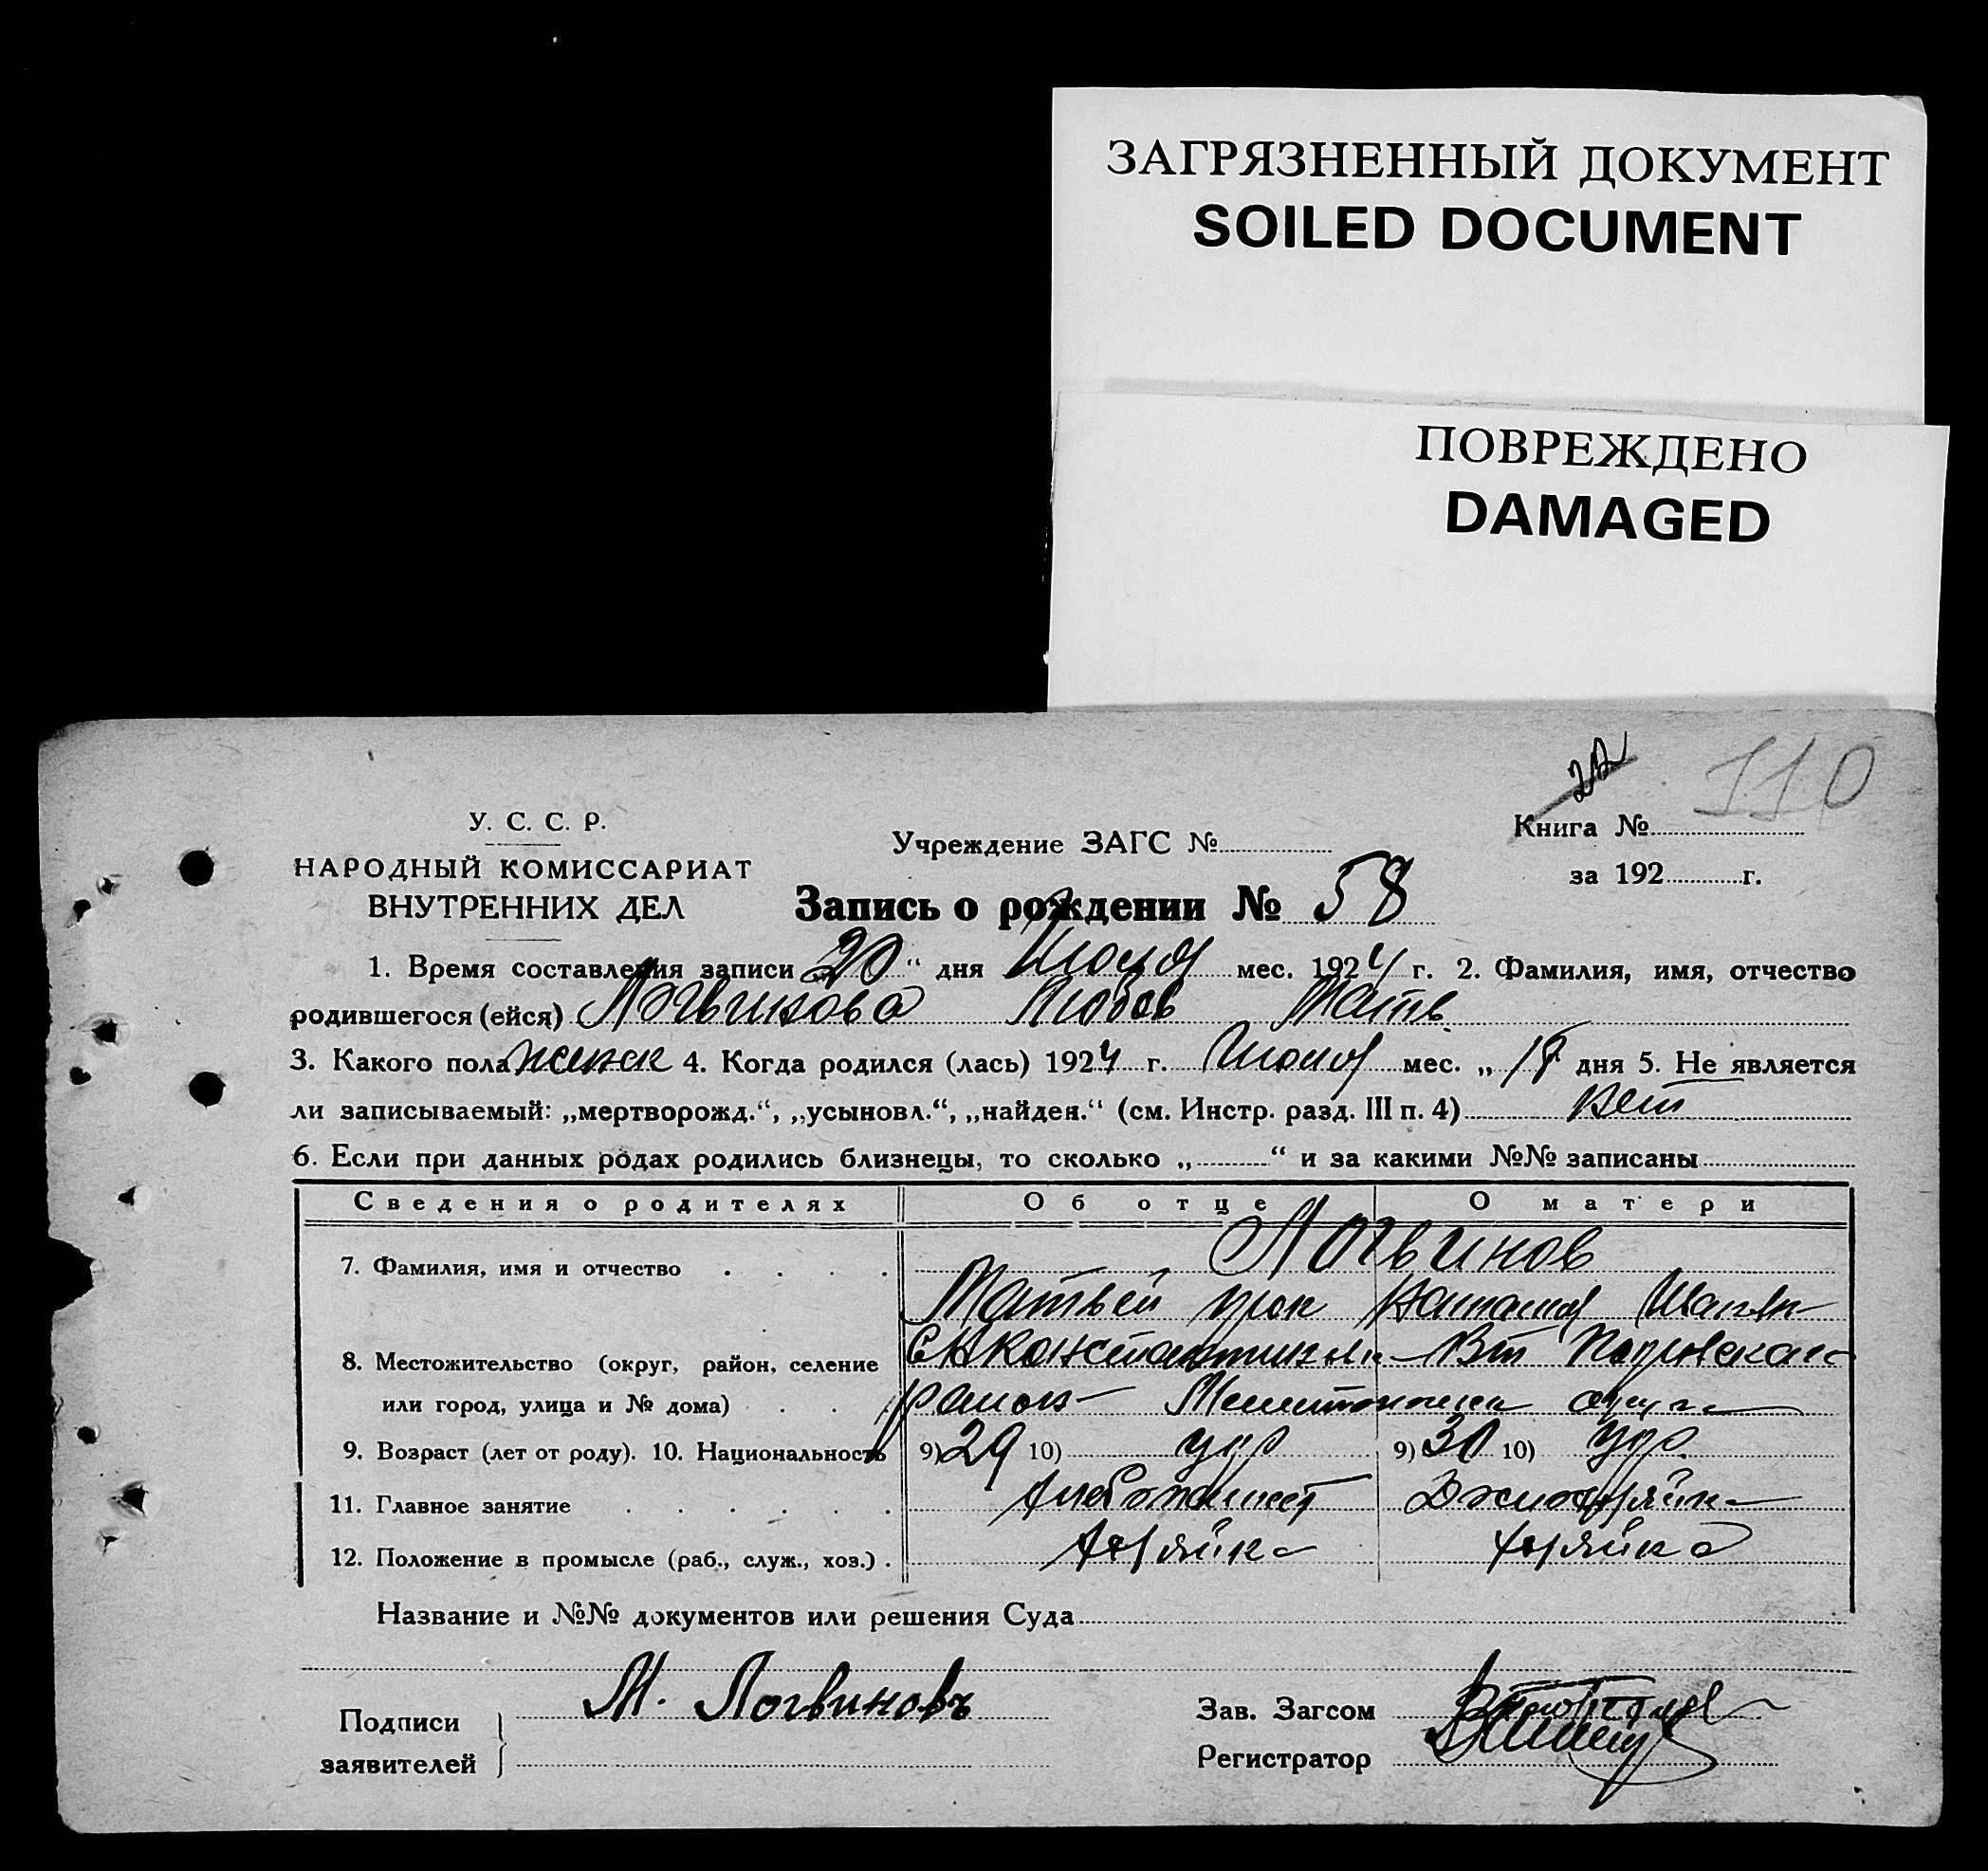 ЗАГРЯЗНЕННЫЙ ДОКУМЕНТ
SOILED DOCUMENT
ПОВРЕЖДЕНО
DAMAGED
110
У. С. С. Р.
НАРОДНЫЙ КОМИССАРИАТ
ВНУТРЕННИХ ДЕЛ
Учреждение ЗАГС №
Книга №
за 192 г.
Запись о рождении № 58
1. Время составления записи 20 “ дня мес. 1924 г. 2. Фамилия, имя, отчество
родившегося (ейся) Логвинова Любов Матв
3. Какого пола женск 4. Когда родился (лась) 1924 г. мес. „ 18 дня 5. Не является
ли записываемый: „мертворожд.“, „усыновл.“, „найден.“ (см. Инстр. разд. III п. 4) Нет
6. Если при данных родах родились близнецы, то сколько „ “ и за какими №№ записаны
Сведения о родителях Об отце О матери
7. Фамилия, имя и отчество Логвинов
Матвей
8. Местожительство (округ, район, селение
или город, улица и № дома)
9. Возраст (лет от роду). 10. Национальность 9) 29 10) укр 9) 30 10) укр
11. Главное занятие
12. Положение в промысле (раб., служ., хоз.)
Название и №№ документов или решения Суда
Подписи
заявителей
М. Логвиновъ
Зав. Загсом
Регистратор